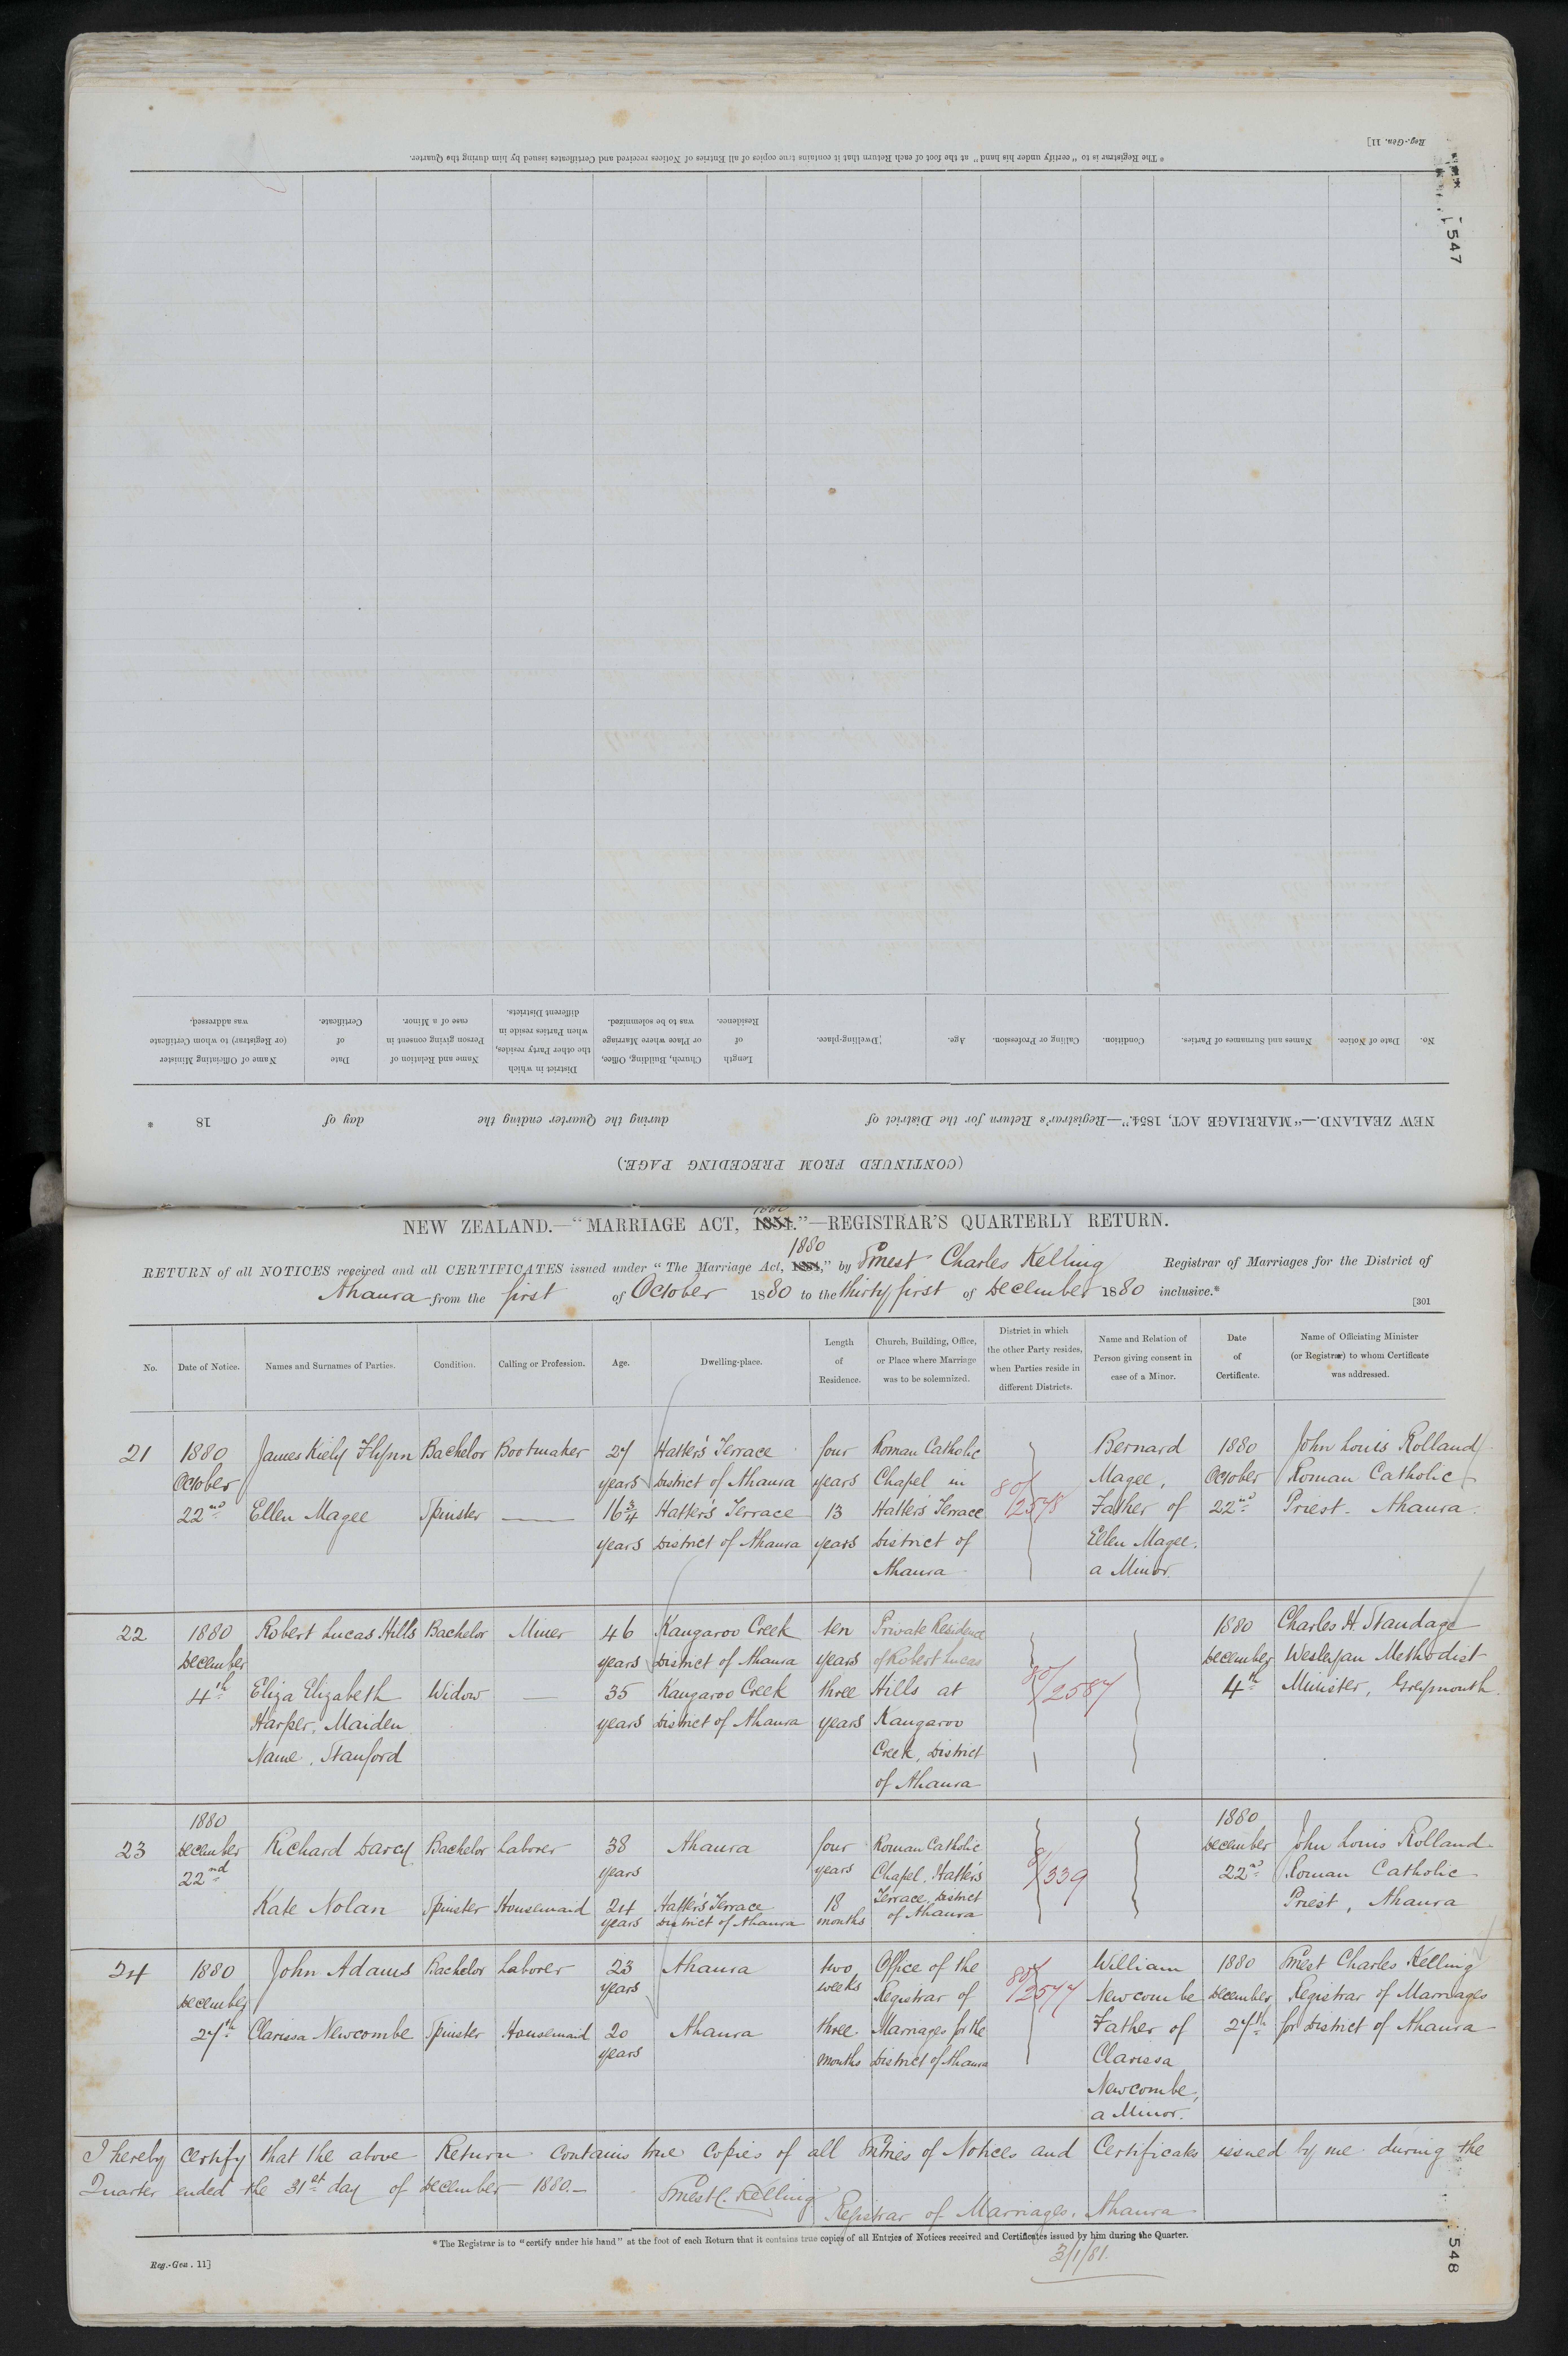 Reg.-Gen. 11]
* The Registrar is to "certify under his hand" at the foot of each Return that it contains true copies of all Entries of Notices received and Certificates issued by him during the Quarter.
547
No.
Date of Notice.
Names and Surnames of Parties.
Condition.
Calling or Profession.
Age.
Dwelling-place.
Length of Residence.
Church, Building, Office, or Place where Marriage was to be solemnized.
District in which the other Party resides, when Parties reside in different Districts.
Name and Relation of Person giving consent in case of a Minor.
Date of Certificate.
Name of Officiating Minister (or Registrar) to whom Certificate was addressed.
NEW ZEALAND.—"MARRIAGE ACT, 1854."—Registrar's Return for the District of during the Quarter ending the day of 18 *
(CONTINUED FROM PRECEDING PAGE.)
1880
NEW ZEALAND.—"MARRIAGE ACT, 1854."—REGISTRAR'S QUARTERLY RETURN.
1880
RETURN of all NOTICES received and all CERTIFICATES issued under "The Marriage Act, 1854," by Ernest Charles Kelling Registrar of Marriages for the District of
Ahaura from the first of October 1880 to the thirty first of December 1880 inclusive.*
[301
No.
Date of Notice.
Names and Surnames of Parties.
Condition.
Calling or Profession.
Age.
Dwelling-place.
Length
of
Residence.
Church, Building, Office,
or Place where Marriage
was to be solemnized.
District in which
the other Party resides,
when Parties reside in
different Districts.
Name and Relation of
Person giving consent in
case of a Minor.
Date
of
Certificate.
Name of Officiating Minister
(or Registrar) to whom Certificate
was addressed.
21
1880
October
22nd
James Kiely Flynn
Ellen Magee
Bachelor
Spinster
Bootmaker
27
years
16 3/4
years
Hatter's Terrace
District of Ahaura
Hatter's Terrace
District of Ahaura
four
years
13
years
Roman Catholic
Chapel in
Hatter's Terrace
District of
Ahaura
80/2578
Bernard
Magee,
Father of
Ellen Magee.
a Minor.
1880
October
22nd
John Louis Rolland
Roman Catholic
Priest. Ahaura.
22
1880
December
4th
Robert Lucas Hills
Eliza Elizabeth
Harper, Maiden
Name. Stanford
Bachelor
Widow
Miner
46
years
35
years
Kangaroo Creek
District of Ahaura
Kangaroo Creek
District of Ahaura
ten
years
three
years
Private Residence
of Robert Lucas
Hills at
Kangaroo
Creek, District
of Ahaura
80/2587
1880
December
4th
Charles H. Standage
Wesleyan Methodist
Minister, Greymouth.
23
1880
December
22nd
Richard Darcy
Kate Nolan
Bachelor
Spinster
Laborer
Housemaid
38
years
24
years
Ahaura
Hatter's Terrace
District of Ahaura
four
years
18
months
Roman Catholic
Chapel. Hatter's
Terrace, District
of Ahaura
81/339
1880
December
22nd
John Louis Rolland
Roman Catholic
Priest, Ahaura
24
1880
December
27th
John Adams
Clarissa Newcombe
Bachelor
Spinster
Laborer
Housemaid
23
years
20
years
Ahaura
Ahaura
two
weeks
three
months
Office of the
Registrar of
Marriages for the
District of Ahaura
80/2577
William
Newcombe
Father of
Clarissa
Newcombe,
a Minor.
1880
December
27th
Ernest Charles Kelling
Registrar of Marriages
for District of Ahaura
I hereby certify that the above Return contains true copies of all Entries of Notices and Certificates issued by me during the
Quarter ended the 31st day of December 1880.—
Ernest C. Kelling
Registrar of Marriages. Ahaura
* The Registrar is to "certify under his hand" at the foot of each Return that it contains true copies of all Entries of Notices received and Certificates issued by him during the Quarter.
3/1/81.
Reg.-Gen. 11]
548